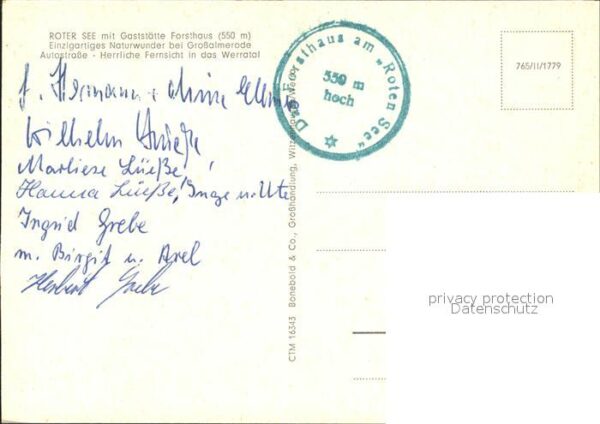 ROTER SEE mit Gaststätte Forsthaus (550 m)
Einzigartiges Naturwunder bei Großalmerode
Autostraße - Herrliche Fernsicht in das Werratal
Das Forsthaus am „Roten See“
550 m
hoch
765/II/1779
Hermann
Wilhelm
Marliese Lüeße!
Hanna Lüeße! Inge
Ingrid Grebe
m. Birgit u. Axel
Herbert Grebe
CTM 16343 Bonebold & Co., Großhandlung,
privacy protection
Datenschutz